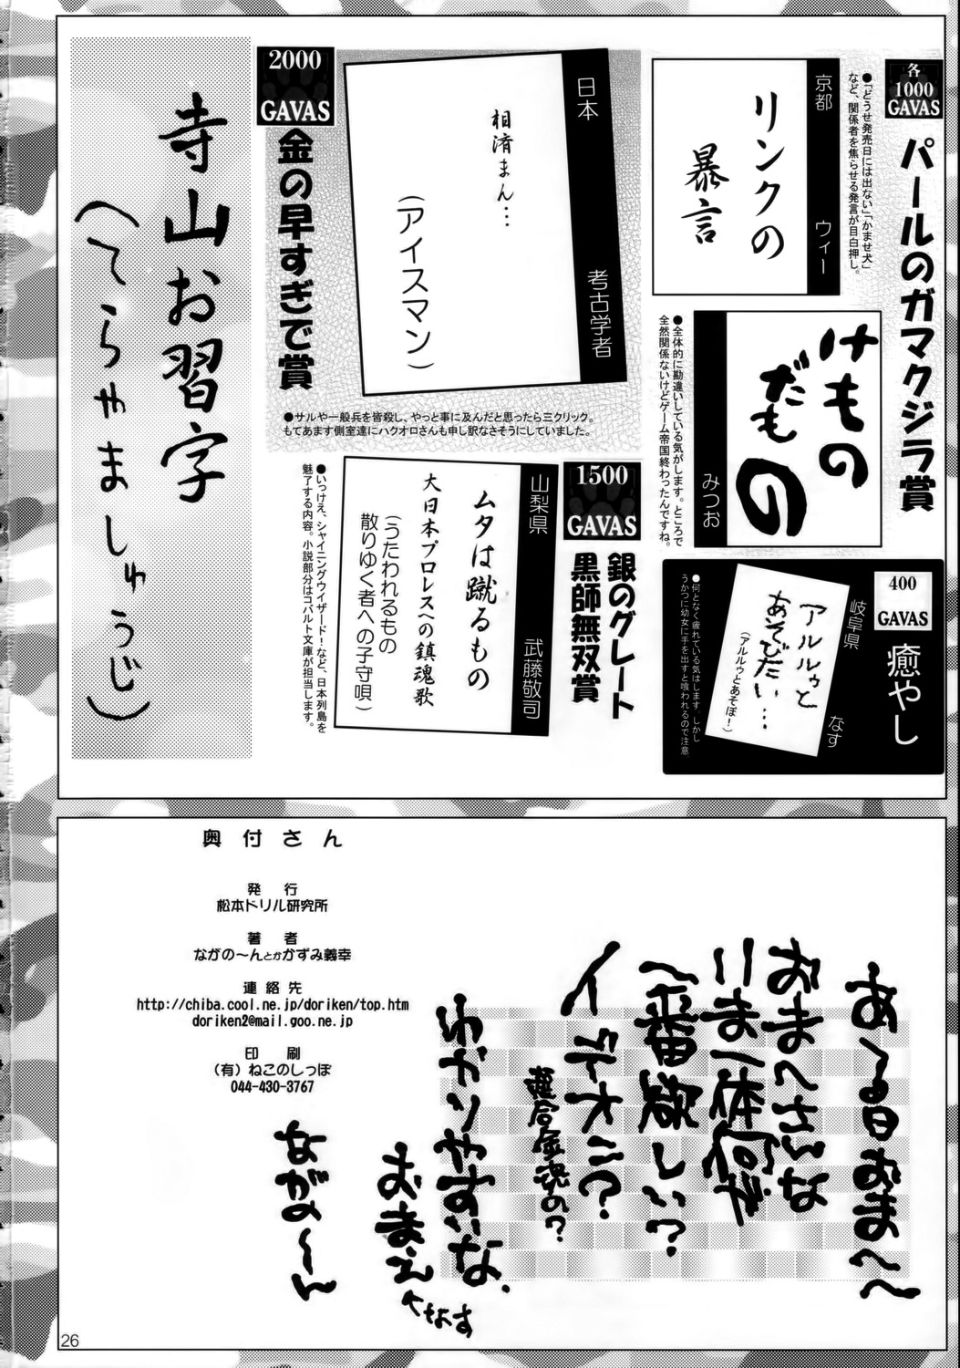 各
1000
GAVAS
パールのガマクジラ賞
京都
ウィー
リンクの
暴言
●「どうせ発売日には出ない」「かませ犬」
など、関係者を焦らせる発言が目白押し。
けもの
だもの
みつお
●全体的に勘違いしている気がします。ところで
全然関係ないけどゲーム帝国終わったんですね。
400
GAVAS
癒やし
岐阜県
なす
アルルゥと
あそびたい…
(アルルゥとあそぼ!)
●何となく疲れている気はします。しかし
うかつに幼女に手を出すと喰われるので注意
2000
GAVAS
金の早すぎで賞
日本
考古学者
相済まん…
(アイスマン)
●サルや一般兵を皆殺し、やっと事に及んだと思ったら三クリック。
もてあます側室達にハクオロさんも申し訳なさそうにしていました。
1500
GAVAS
銀のグレート
黒師無双賞
山梨県
武藤敬司
ムタは蹴るもの
大日本プロレスへの鎮魂歌
(うたわれるもの
散りゆく者への子守唄)
●いっけえ、シャイニングウィザード!など、日本列島を
魅了する内容。小説部分はコバルト文庫が担当します。
寺山お習字
(てらやましゅうじ)
奥付さん
発行
松本ドリル研究所
著者
ながの〜んとかかずみ義幸
連絡先
http://chiba.cool.ne.jp/doriken/top.htm
doriken2@mail.goo.ne.jp
印刷
(有)ねこのしっぽ
044-430-3767
あ〜る日おまへへ
おまへさんな
いま一体何が
一番欲しい?
イデオン?
超合金魂の?
わかりやすいな、
おまえ
←なす
ながの〜ん
26